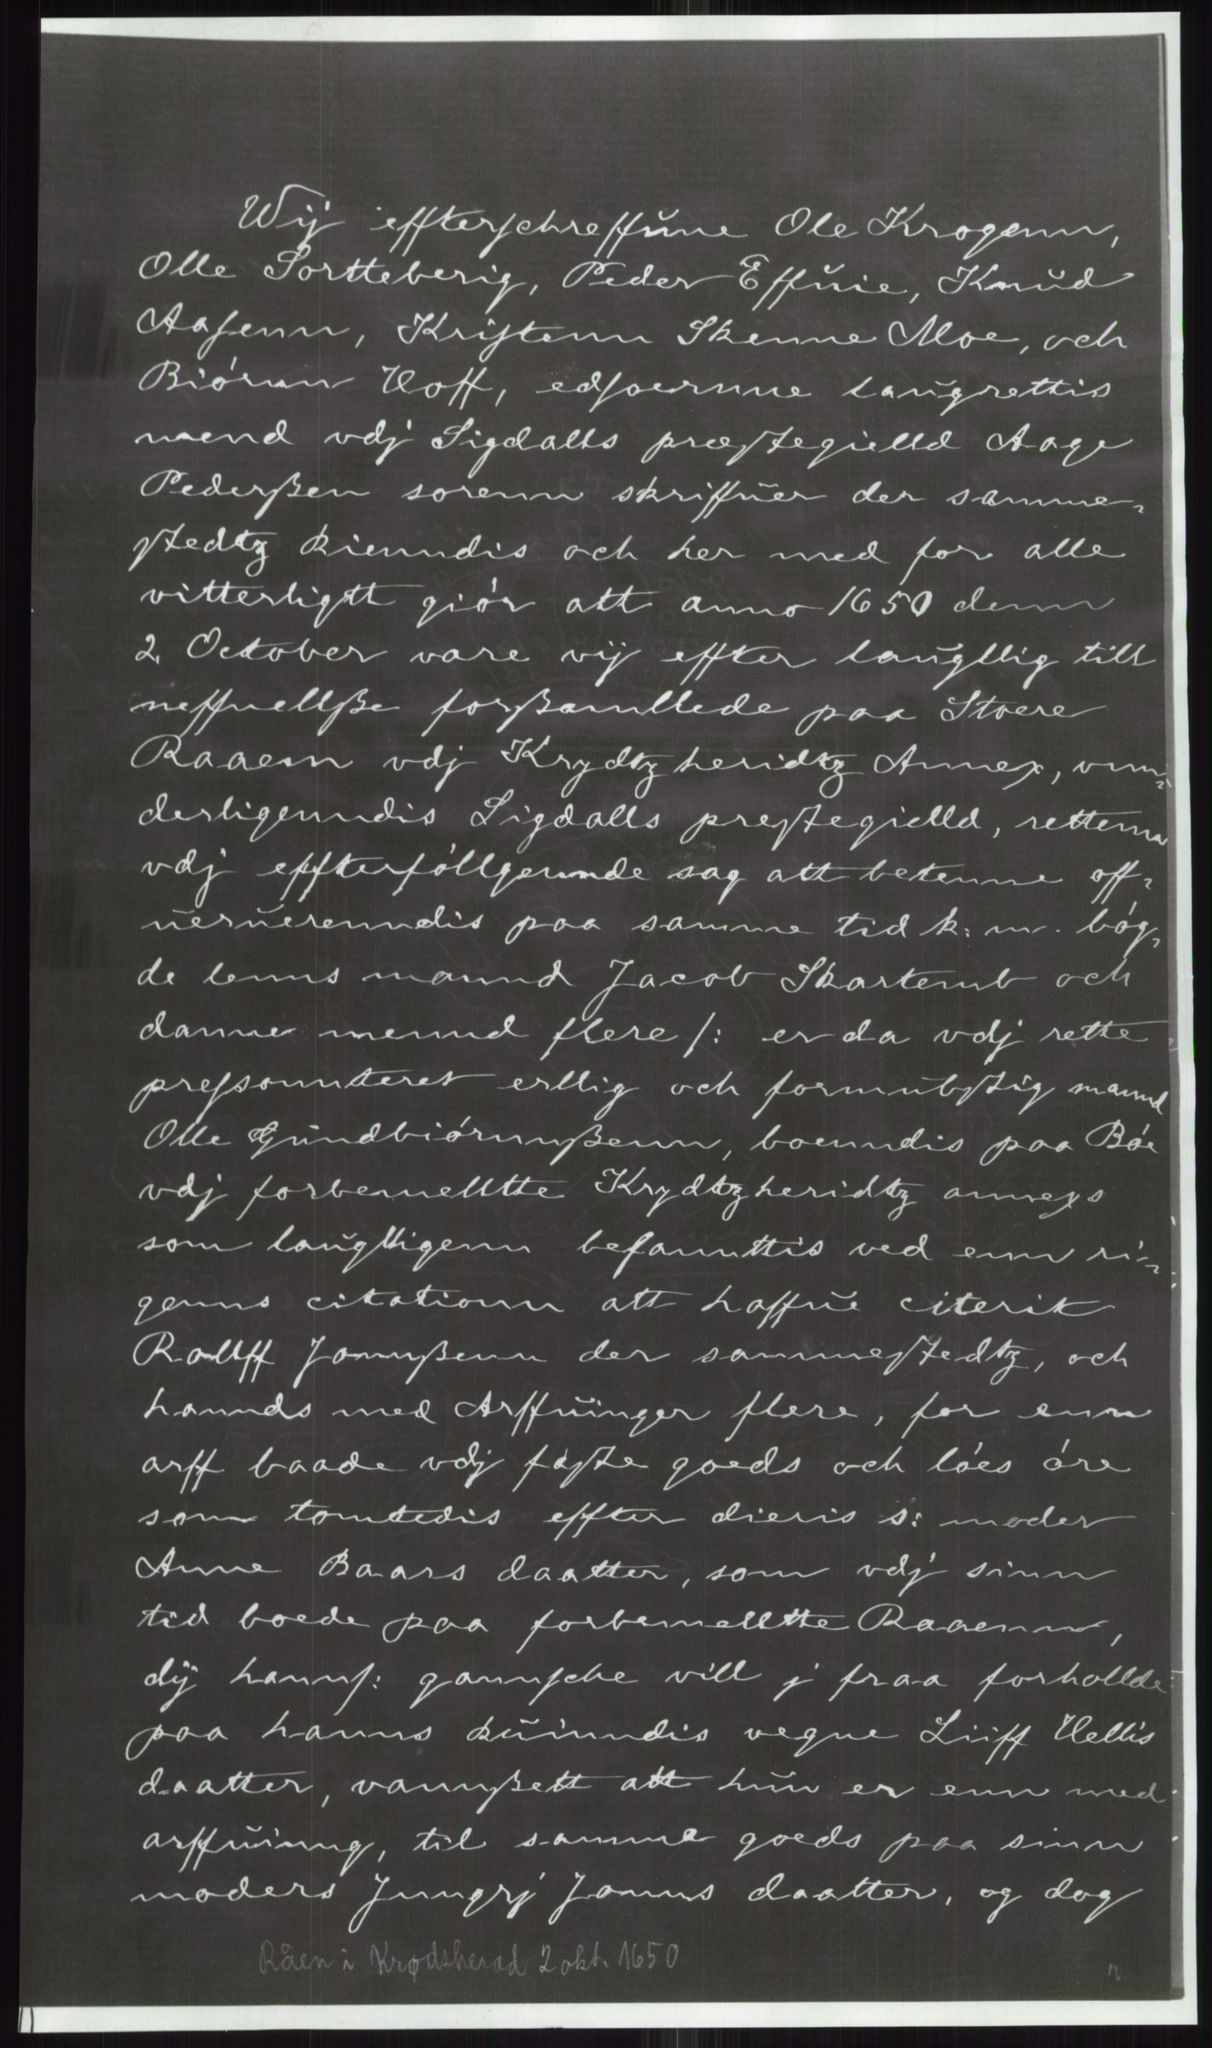 Wij effterschreffŭne Ole Krogenn,
Olle Sortteberig, Peder Effŭie, Knŭd
Aasenn, Kristenn Skenne Moe, och
Biórnn Hoff, edsoernne laŭgrettis
mend vdj Sigdalls præstegielld Aage
Pederßen sorenn skriffŭer der samme-
stedtz kienndis och her med for alle
vitterligtt giór att anno 1650 denn
2. October vare vij effter laŭgllig till
neffnellße forßamllede paa Stoere
Raaenn vdj Krydtzheridtz Annex, vnn-
derligenndis Sigdalls prestegielld, rettenn
vdj effterfóllgennde sag att betenne off-
ŭerŭerenndis paa samme tid k: m. bóg-
de lenns mannd Jacob Skartemb och
danne mennd flere /: er da vdj rette
pressonnteret erllig och fornŭbstig mannd
Olle Gŭndbiórnnßenn, boenndis paa Bóe
vdj forbemelltte Krydtzheridtz annexs
som laŭglligenn befanttis ved enn ri-
genns citationn att haffŭe citerit
Rollff Jonnßenn der sammestedtz, och
hannds med Arffŭinger flere, for enn
arff baade vdj faste goeds och lóes óre
som tomtedis effter dieris s: moder
Anne Baars daatter, som vdj sinn
tid boede paa forbemelltte Raaenn,
dij hanns: gannsche vill j fraa forhollde
paa hanns kŭinndis vegne Liiff Hellis
daatter, vannßett att hŭn er enn med
arffŭinng, til samme goeds paa sinn
moders Jungrj Jonns daatter, og dog
Råen i Krødsherad 2 okt. 1650